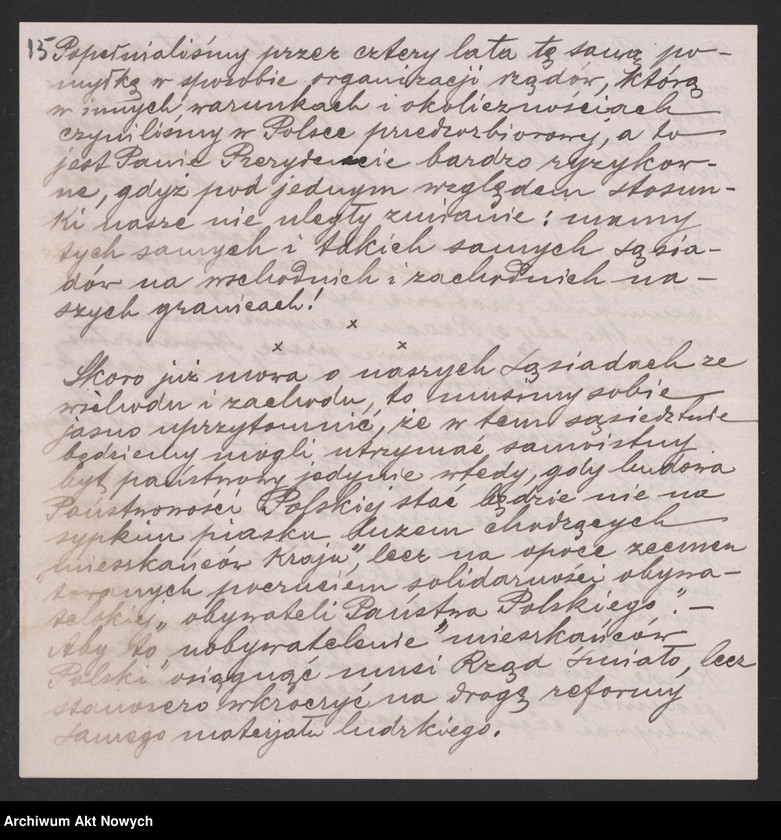 15 Popełnialiśmy przez cztery lata tę samą po-
myłkę w sposobie organizacji rządów, którą
w innych warunkach i okolicznościach
czyniliśmy w Polsce przedrozbiorowej, a to
jest Panie Prezydencie bardzo ryzykow-
ne, gdyż pod jednym względem stosun-
ki nasze nie uległy zmianie: mamy
tych samych i takich samych sąsia-
dów na wschodnich i zachodnich na-
szych granicach!
x x x
Skoro już mowa o naszych sąsiadach ze
wschodu i zachodu, to musimy sobie
jasno uprzytomnić, że w tem sąsiedztwie
będziemy mogli utrzymać samoistny
byt państwowy jedynie wtedy, gdy budowa
Państwowości Polskiej stać będzie nie na
sypkim piasku luzem chodzących
"mieszkańców Kraju", lecz na opoce zcemen
towanych poczuciem solidarności obywa-
telskiej „obywateli Państwa Polskiego". —
Aby to "uobywatelenie" mieszkańców
Polski" osiągnąć musi Rząd śmiało, lecz
stanowczo wkroczyć na drogę reformy
samego materjału ludzkiego.
Archiwum Akt Nowych